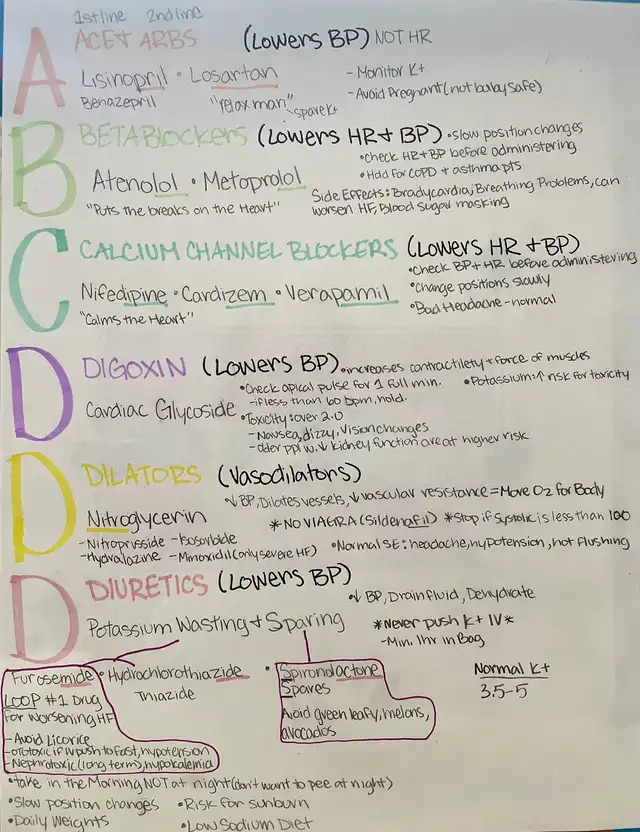 1st line 2nd line
A ACE+ ARBS (Lowers BP) NOT HR
Lisinopril • Losartan
- Monitor K+
Benazepril "relax man" spare K+
- Avoid Pregnant (not baby safe)
B BETABlockers (Lowers HR + BP) • slow position changes
• check HR+BP before administering
Atenolol • Metoprolol
• Hold for COPD + asthma pts
"Puts the breaks on the Heart"
Side Effects: Bradycardia, Breathing Problems, can
worsen HF, Blood Sugar masking
C CALCIUM CHANNEL BLOCKERS (Lowers HR + BP)
• Check BP+ HR before administering
Nifedipine • Cardizem • Verapamil
• Change positions slowly
"Calms the Heart"
• Bad Headache - normal
D DIGOXIN (Lowers BP) • increases contractility + force of muscles
Cardiac Glycoside
• Check apical pulse for 1 full min.
- if less than 60 bpm, hold.
• Potassium: ↑ risk for toxicity
• Toxicity: over 2.0
- Nausea, dizzy, Vision changes
- older ppl w. ↓ kidney function are at higher risk
D DILATORS (Vasodilators)
↓ BP, Dilates vessels, ↓ vascular resistance = Move O2 for Body
Nitroglycerin
* NO VIAGRA (Sildenafil) * Stop if Systolic is less than 100
- Nitroprusside - Isosorbide
- Hydralazine - Minoxidil (only severe HF)
• Normal SE: headache, hypotension, hot flushing
D DIURETICS (Lowers BP)
↓ BP, Drain fluid, Dehydrate
Potassium Wasting + Sparing
* Never push K+ IV *
- Min. 1hr in Bag
Furosemide • Hydrochlorothiazide
LOOP #1 Drug Thiazide
For Worsening HF
- Avoid Licorice
- ototoxic if IV push to fast, hypotension
- Nephrotoxic (long term), hypokalemia
• Spironolactone
Spares
Avoid green leafy, melons,
avocados
Normal K+
3.5-5
• take in the Morning NOT at night (don't want to pee at night)
• Slow position changes • Risk for sunburn
• Daily Weights • Low Sodium Diet